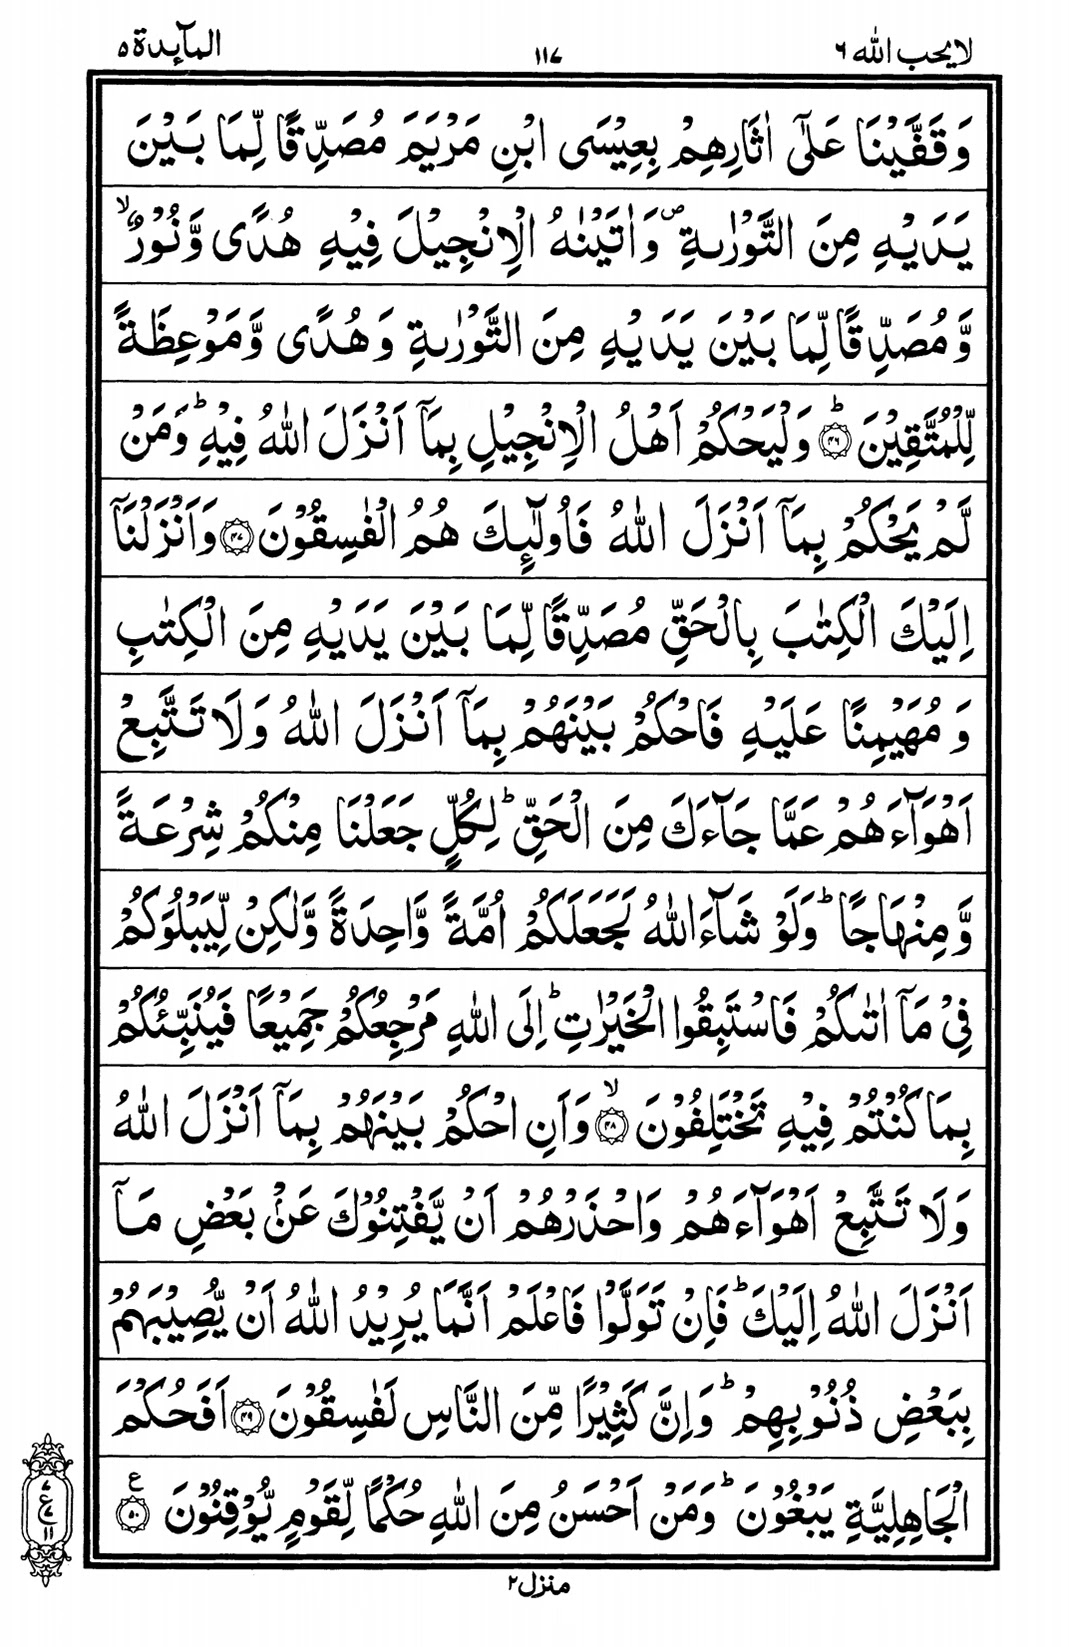 لا يحب الله ٦
١١٧
المآىِٕدة ٥
وَقَفَّيْنَا عَلٰٓى اٰثَارِهِمْ بِعِيْسَى ابْنِ مَرْيَمَ مُصَدِّقًا لِّمَا بَيْنَ
يَدَيْهِ مِنَ التَّوْرٰىةِ ۪ وَاٰتَيْنٰهُ الْاِنْجِيْلَ فِيْهِ هُدًى وَّنُوْرٌ ۙ
وَّمُصَدِّقًا لِّمَا بَيْنَ يَدَيْهِ مِنَ التَّوْرٰىةِ وَهُدًى وَّمَوْعِظَةً
لِّلْمُتَّقِيْنَ ؕ﴿۴۶﴾ وَلْيَحْكُمْ اَهْلُ الْاِنْجِيْلِ بِمَاۤ اَنْزَلَ اللّٰهُ فِيْهِ ؕ وَمَنْ
لَّمْ يَحْكُمْ بِمَاۤ اَنْزَلَ اللّٰهُ فَاُولٰٓئِكَ هُمُ الْفٰسِقُوْنَ ﴿۴۷﴾ وَاَنْزَلْنَاۤ
اِلَيْكَ الْكِتٰبَ بِالْحَقِّ مُصَدِّقًا لِّمَا بَيْنَ يَدَيْهِ مِنَ الْكِتٰبِ
وَمُهَيْمِنًا عَلَيْهِ فَاحْكُمْ بَيْنَهُمْ بِمَاۤ اَنْزَلَ اللّٰهُ وَلَا تَتَّبِعْ
اَهْوَآءَهُمْ عَمَّا جَآءَكَ مِنَ الْحَقِّ ؕ لِكُلٍّ جَعَلْنَا مِنْكُمْ شِرْعَةً
وَّمِنْهَاجًا ؕ وَلَوْ شَآءَ اللّٰهُ لَجَعَلَكُمْ اُمَّةً وَّاحِدَةً وَّلٰكِنْ لِّيَبْلُوَكُمْ
فِيْ مَاۤ اٰتٰىكُمْ فَاسْتَبِقُوا الْخَيْرٰتِ ؕ اِلَى اللّٰهِ مَرْجِعُكُمْ جَمِيْعًا فَيُنَبِّئُكُمْ
بِمَا كُنْتُمْ فِيْهِ تَخْتَلِفُوْنَ ۙ﴿۴۸﴾ وَاَنِ احْكُمْ بَيْنَهُمْ بِمَاۤ اَنْزَلَ اللّٰهُ
وَلَا تَتَّبِعْ اَهْوَآءَهُمْ وَاحْذَرْهُمْ اَنْ يَّفْتِنُوْكَ عَنْۢ بَعْضِ مَاۤ
اَنْزَلَ اللّٰهُ اِلَيْكَ ؕ فَاِنْ تَوَلَّوْا فَاعْلَمْ اَنَّمَا يُرِيْدُ اللّٰهُ اَنْ يُّصِيْبَهُمْ
بِبَعْضِ ذُنُوْبِهِمْ ؕ وَاِنَّ كَثِيْرًا مِّنَ النَّاسِ لَفٰسِقُوْنَ ﴿۴۹﴾ اَفَحُكْمَ
الْجَاهِلِيَّةِ يَبْغُوْنَ ؕ وَمَنْ اَحْسَنُ مِنَ اللّٰهِ حُكْمًا لِّقَوْمٍ يُّوْقِنُوْنَ ﴿۵۰﴾ ع
ع
١١
منزل ٢